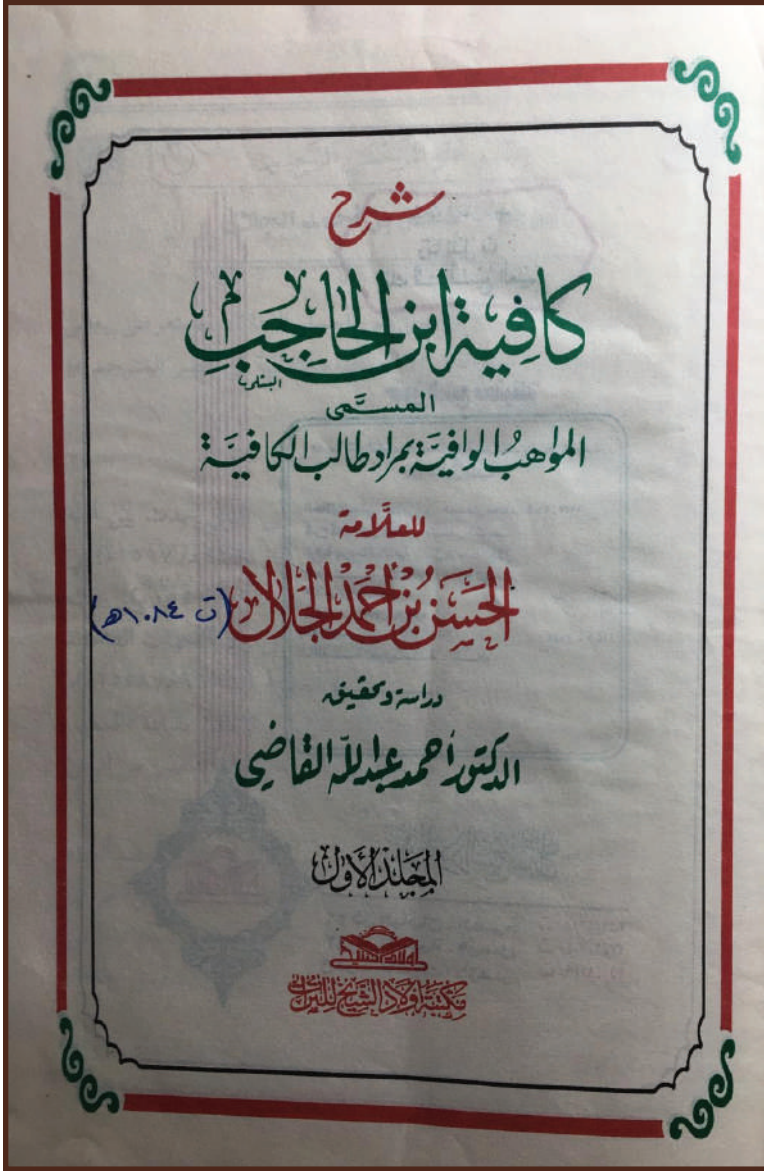 شرح
كافية ابن الحاجب
المسمَّى
المواهبُ الوافيَّة بمراد طالب الكافيَّة
للعلَّامة
الحسَن بْن أحمَد الجَلال (ت ١٠٨٤هـ)
دراسة وتحقيق
الدكتور أحمد عبدالله القاضي
المجَلد الأوَل
مكتبة أولاد الشيخ للتراث